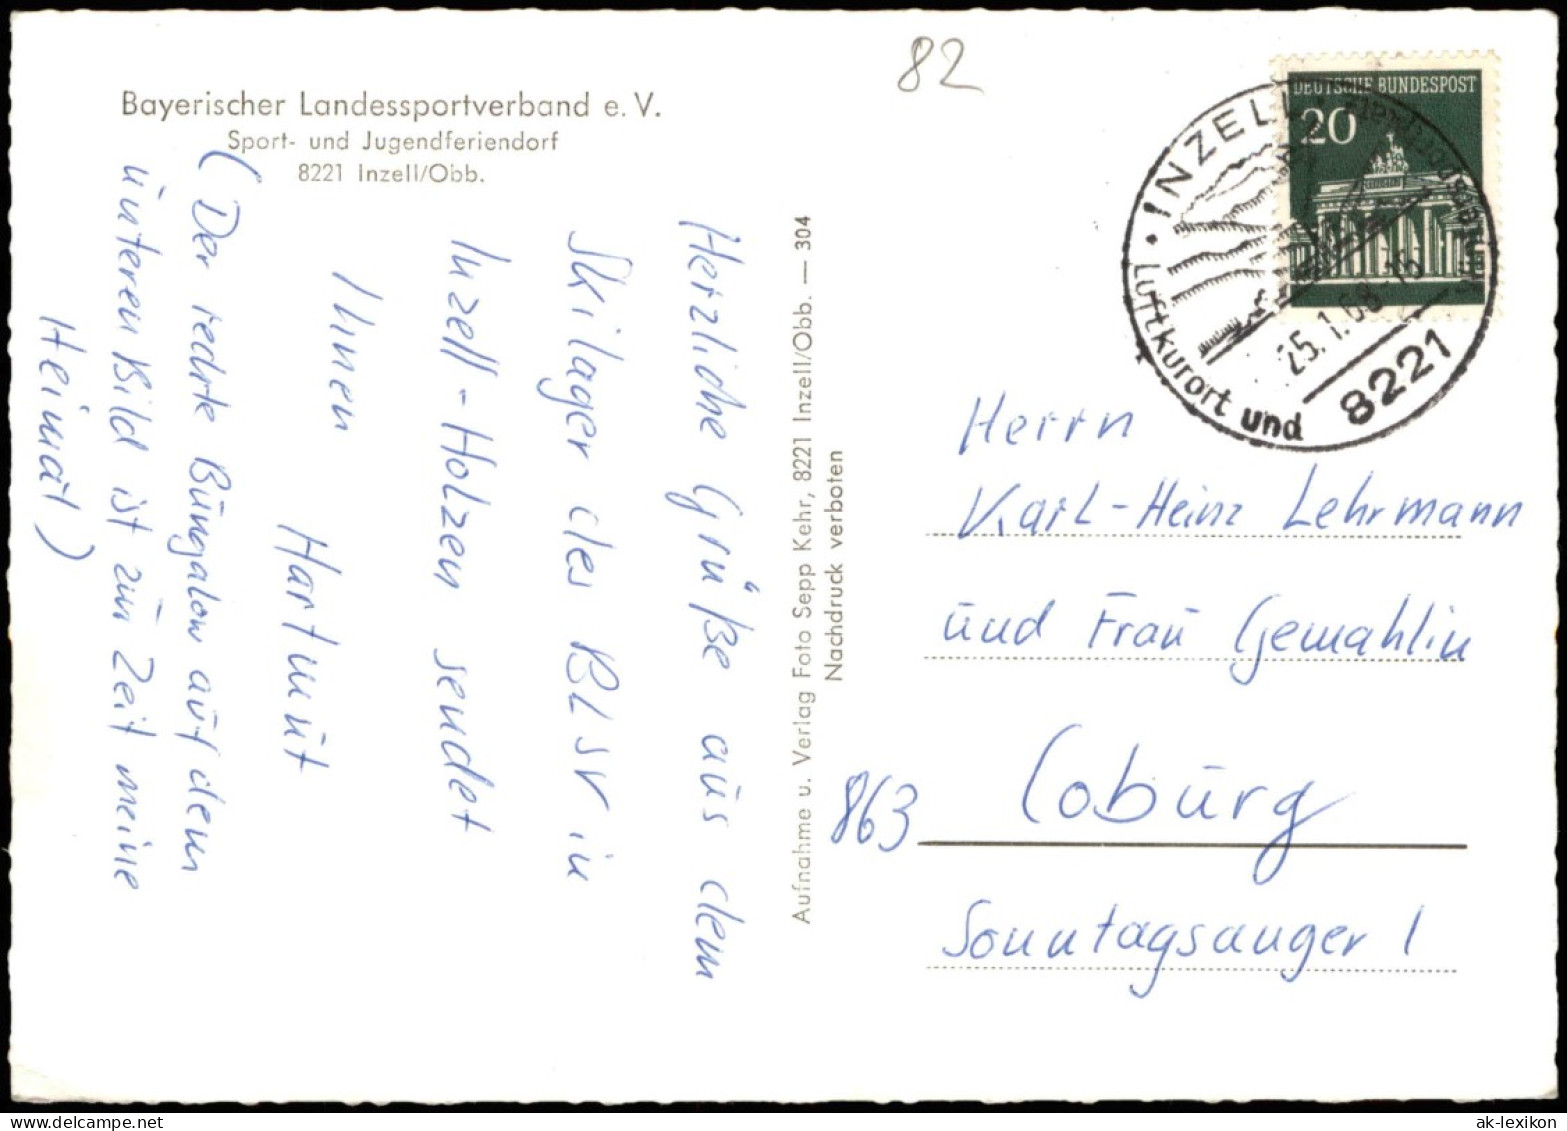 82
Bayerischer Landessportverband e. V.
Sport- und Jugendferiendorf
8221 Inzell/Obb.
Herzliche Grüße aus dem
Skilager des BLSV in
Inzell-Holzen sendet
Ihnen
Hartmut
(Der rechte Bungalow auf dem
unteren Bild ist zur Zeit meine
Heimat)
Aufnahme u. Verlag Foto Sepp Kehr, 8221 Inzell/Obb. — 304
Nachdruck verboten
DEUTSCHE BUNDESPOST
20
INZELL
25.1.68-15
8221
Luftkurort und
Herrn
Karl-Heinz Lehrmann
und Frau Gemahlin
863 Coburg
Sonntagsanger 1
ak-lexikon